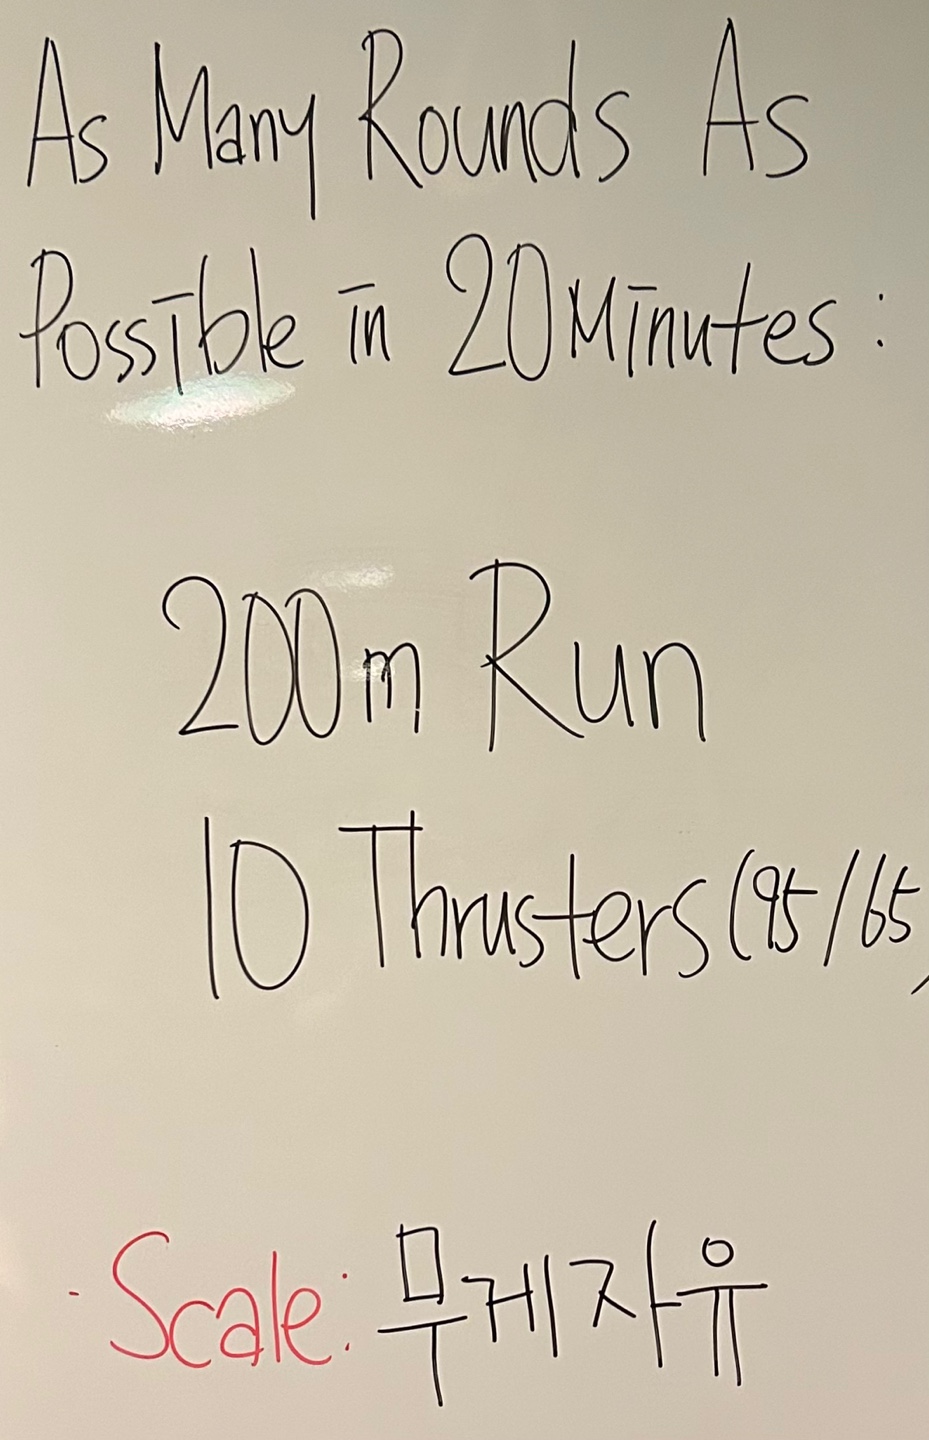 As Many Rounds As
Possible in 20 Minutes :
200m Run
10 Thrusters (95/65)
· Scale: 무게자유